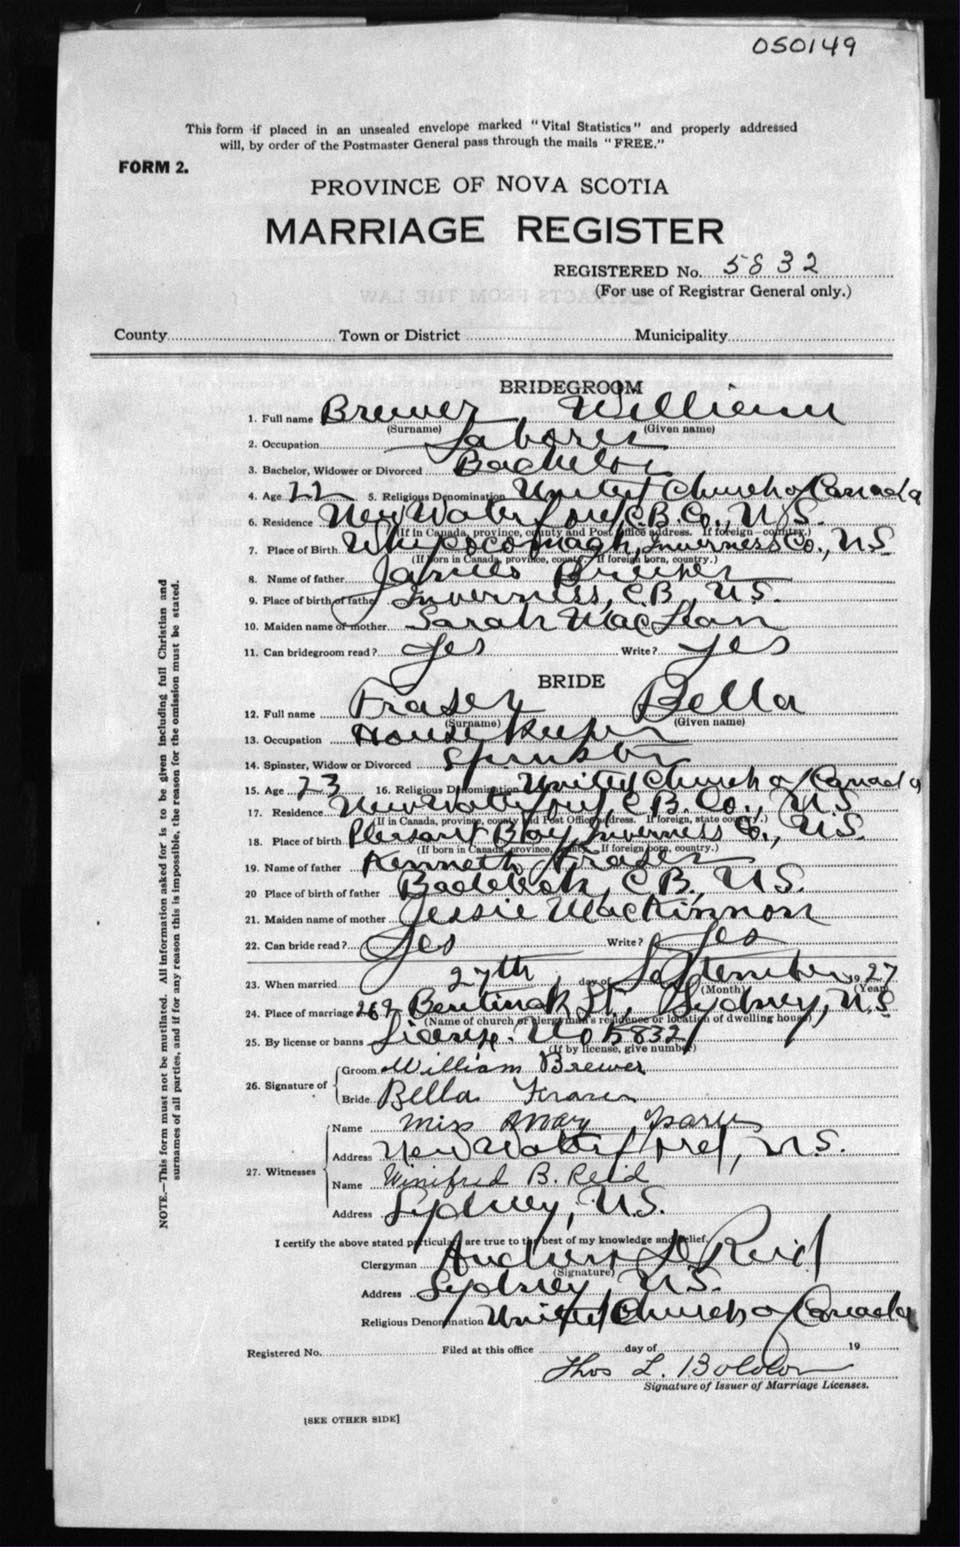 050149
This form if placed in an unsealed envelope marked "Vital Statistics" and properly addressed
will, by order of the Postmaster General pass through the mails "FREE."
FORM 2.
PROVINCE OF NOVA SCOTIA
MARRIAGE REGISTER
REGISTERED No. 5832
(For use of Registrar General only.)
County Town or District Municipality
BRIDEGROOM
1. Full name Brewer William
(Surname) (Given name)
2. Occupation Laborer
3. Bachelor, Widower or Divorced Bachelor
4. Age 22 5. Religious Denomination United Church of Canada
6. Residence New Waterford, C.B. Co., N.S.
(If in Canada, province, county and Post Office address. If foreign—country.)
7. Place of Birth Whycocomagh, Inverness Co., N.S.
(If born in Canada, province, county. If foreign born, country.)
8. Name of father James Brewer
9. Place of birth of father Inverness, C.B., N.S.
10. Maiden name of mother Sarah MacLean
11. Can bridegroom read? Yes Write? Yes
BRIDE
12. Full name Fraser Bella
(Surname) (Given name)
13. Occupation House Keeper
14. Spinster, Widow or Divorced Spinster
15. Age 23 16. Religious Denomination United Church of Canada
17. Residence New Waterford, C.B. Co., N.S.
(If in Canada, province, county and Post Office address. If foreign, state country.)
18. Place of birth Pleasant Bay, Inverness Co., N.S.
(If born in Canada, province, county. If foreign born, country.)
19. Name of father Kenneth Fraser
20 Place of birth of father Baddeck, C.B., N.S.
21. Maiden name of mother Jessie MacKinnon
22. Can bride read? Yes Write? Yes
23. When married 27th day of September 1927
(Month) (Year)
24. Place of marriage 269 Bentinck St., Sydney, N.S.
(Name of church or clergyman's residence or location of dwelling house)
25. By license or banns License No 5832
(If by license, give number)
26. Signature of
Groom William Brewer
Bride Bella Fraser
27. Witnesses
Name Miss Mary
Address New Waterford, N.S.
Name Winifred B. Reid
Address Sydney, N.S.
I certify the above stated particulars are true to the best of my knowledge and belief.
Clergyman Andrew D Reid
(Signature)
Address Sydney N.S.
Religious Denomination United Church of Canada
Registered No. Filed at this office day of 19
Thos L.
Signature of Issuer of Marriage Licenses.
[SEE OTHER SIDE]
NOTE.—This form must not be mutilated. All information asked for is to be given including full Christian and
surnames of all parties, and if for any reason this is impossible, the reason for the omission must be stated.